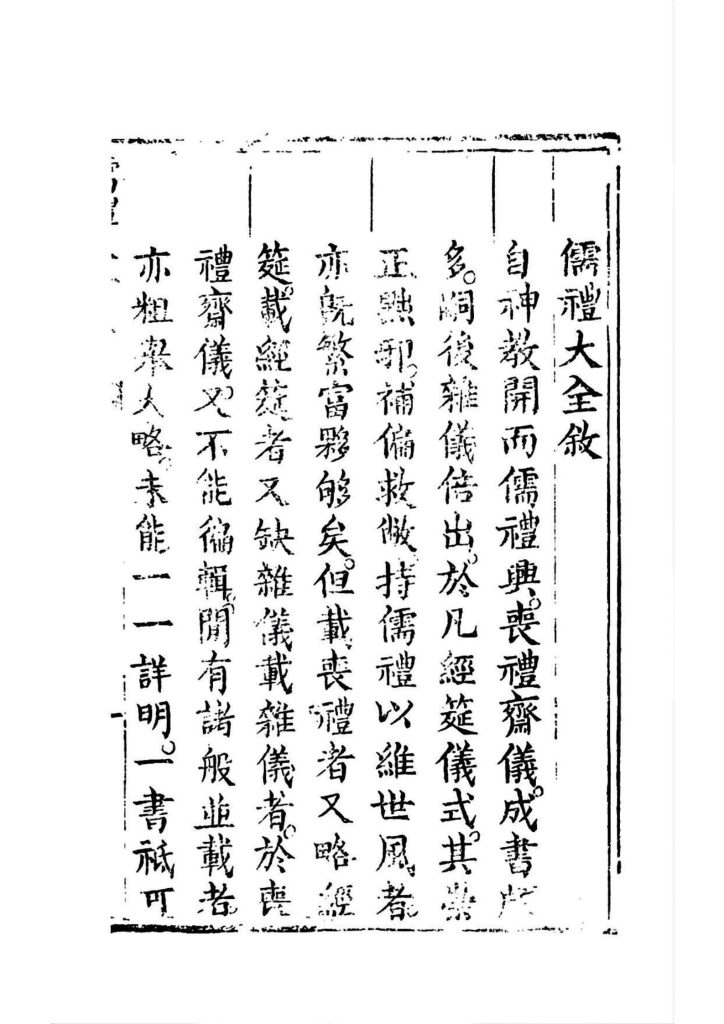 儒禮大全敘
自神教開而儒禮興。喪禮齋儀。成書
多。嗣後雜儀倍出。於凡經筵儀式。其崇
正黜邪。補偏救敝。持儒禮以維世風者
亦旣繁富夥够矣。但載喪禮者又略經
筵。載經筵者又缺雜儀載雜儀者。於喪
禮齋儀。又不能徧輯。閒有諸般並載者
亦粗舉大略。未能一一詳明。一書祗可